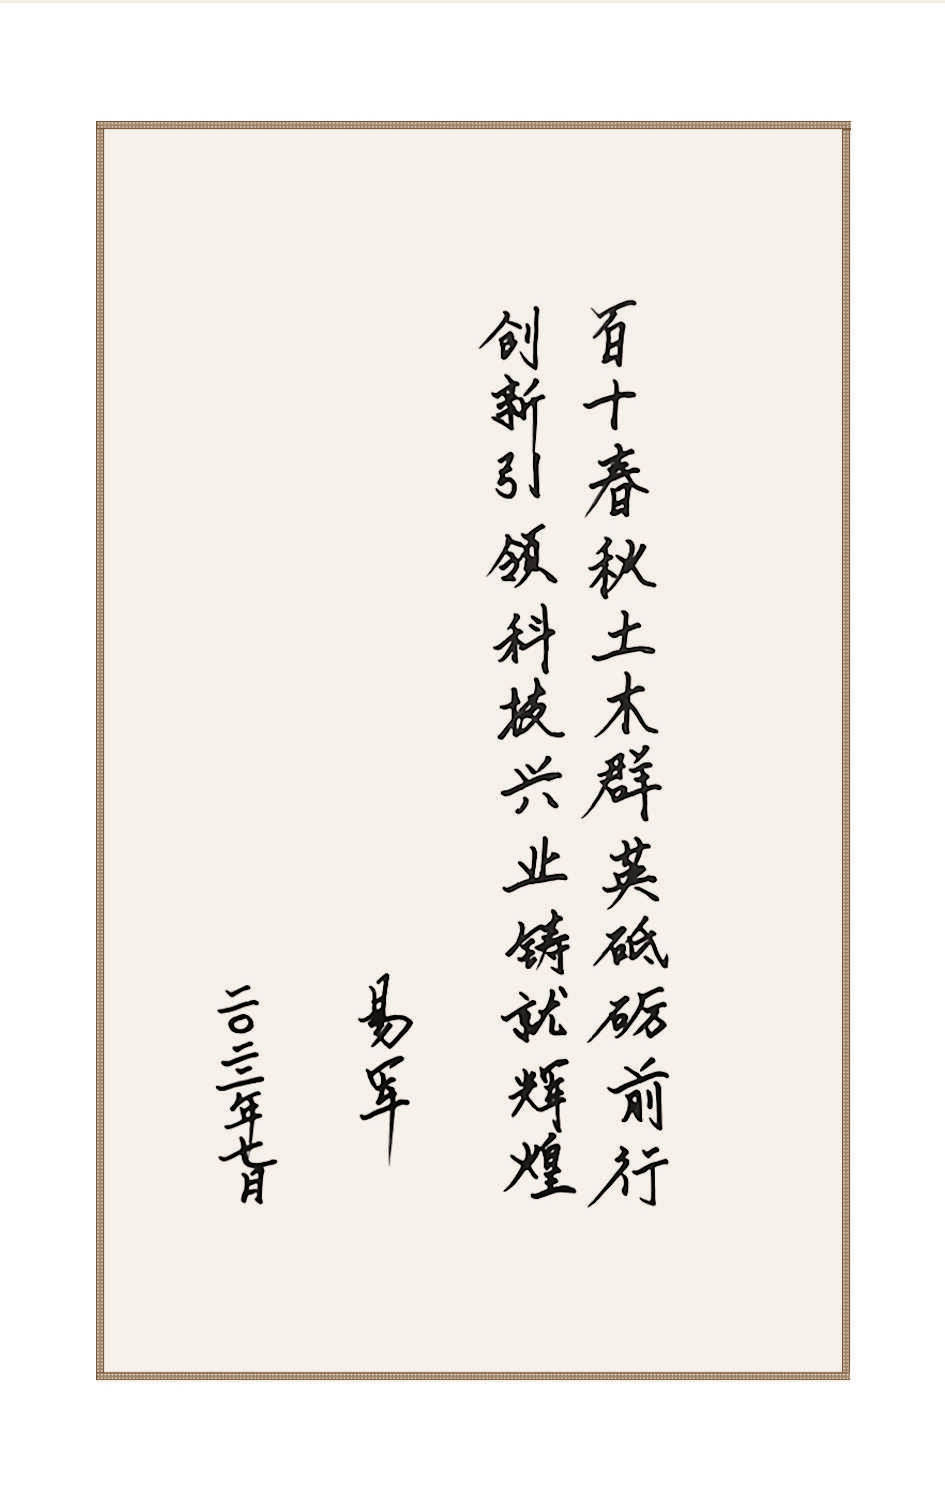 百十春秋土木群英砥砺前行
创新引领科技兴业铸就辉煌
易军
二〇二二年七月